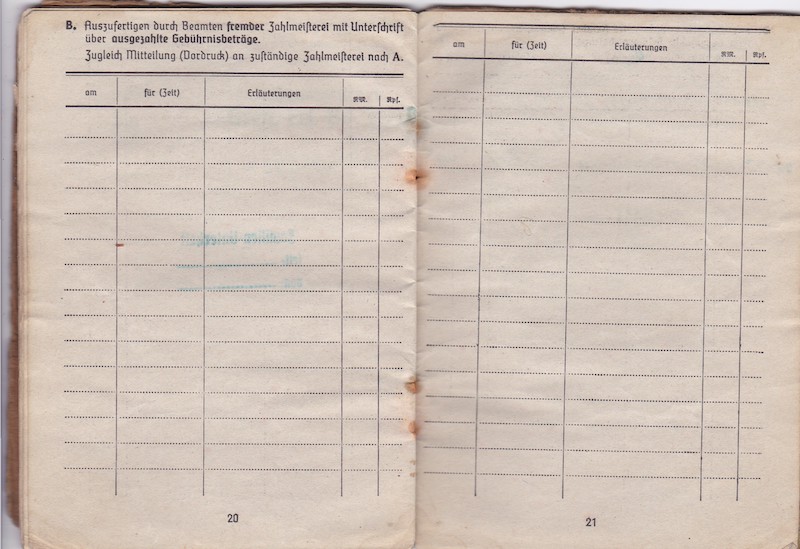 B. Auszufertigen durch Beamten fremder Zahlmeisterei mit Unterschrift
über ausgezahlte Gebührnisbeträge.
Zugleich Mitteilung (Vordruck) an zuständige Zahlmeisterei nach A.
am für (Zeit) Erläuterungen RM. Rpf.
20
am für (Zeit) Erläuterungen RM. Rpf.
21